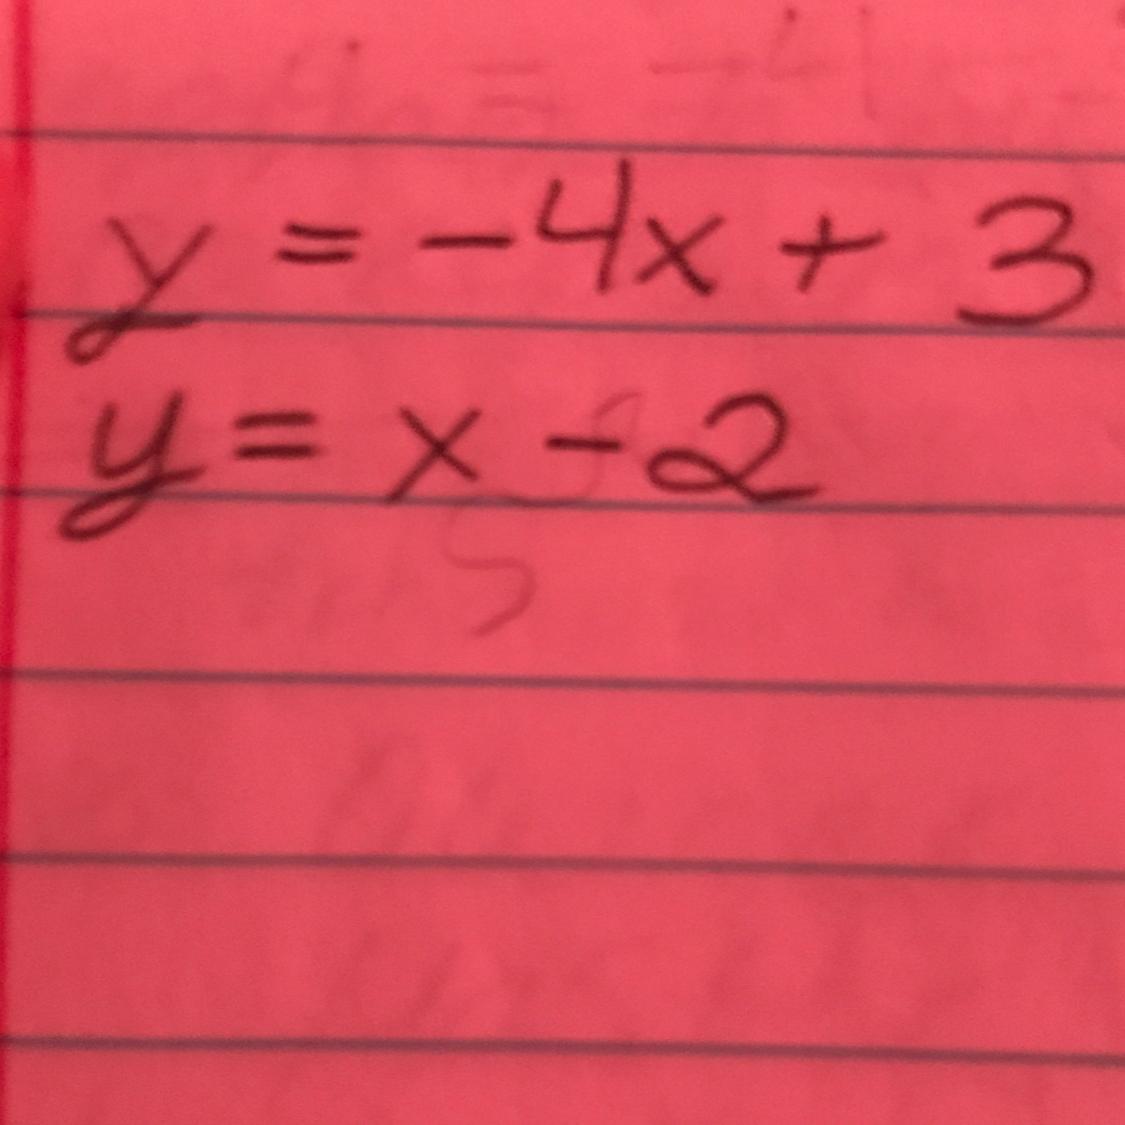 y = -4x + 3
y = x - 2